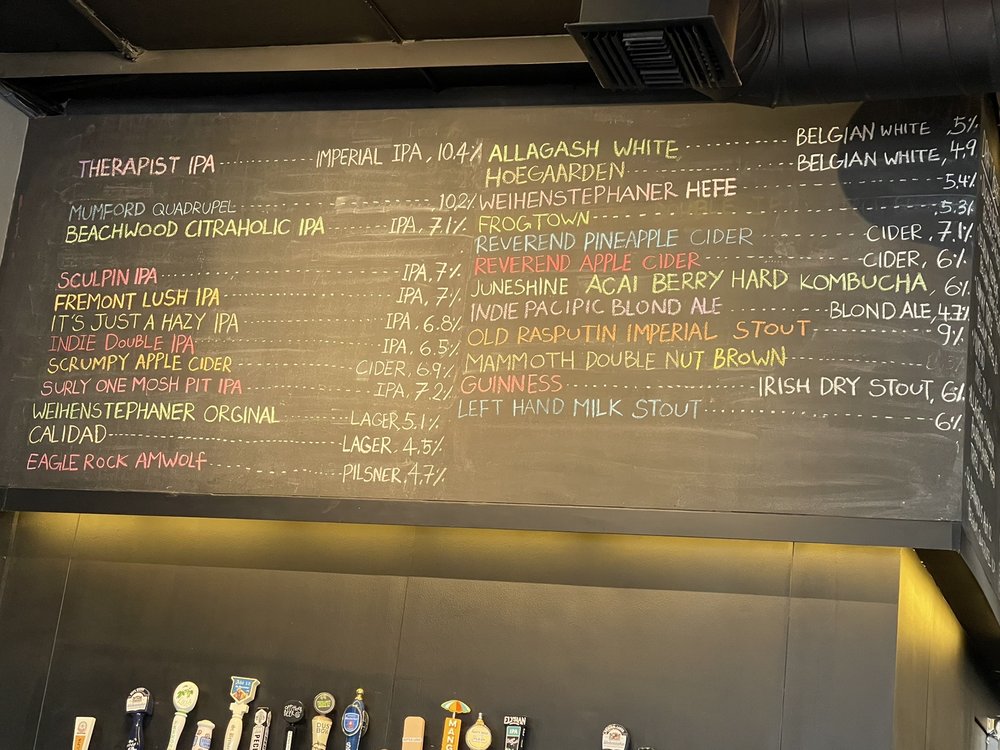 THERAPIST IPA IMPERIAL IPA, 10.4%
MUMFORD QUADRUPEL 10.2%
BEACHWOOD CITRAHOLIC IPA IPA, 7.1%
SCULPIN IPA IPA, 7%
FREMONT LUSH IPA IPA, 7%
IT'S JUST A HAZY IPA IPA, 6.8%
INDIE DOUBLE IPA IPA, 6.5%
SCRUMPY APPLE CIDER CIDER, 6.9%
SURLY ONE MOSH PIT IPA IPA, 7.2%
WEIHENSTEPHANER ORGINAL LAGER 5.1%
CALIDAD LAGER, 4.5%
EAGLE ROCK AMWOLF PILSNER, 4.7%
ALLAGASH WHITE BELGIAN WHITE ,5%
HOEGAARDEN BELGIAN WHITE, 4.9
WEIHENSTEPHANER HEFE 5.4%
FROGTOWN 5.3%
REVEREND PINEAPPLE CIDER CIDER, 7.1%
REVEREND APPLE CIDER CIDER, 6%
JUNESHINE ACAI BERRY HARD KOMBUCHA, 6%
INDIE PACIFIC BLOND ALE BLOND ALE, 4.7%
OLD RASPUTIN IMPERIAL STOUT 9%
MAMMOTH DOUBLE NUT BROWN
GUINNESS IRISH DRY STOUT, 6%
LEFT HAND MILK STOUT 6%
MANG
IPA